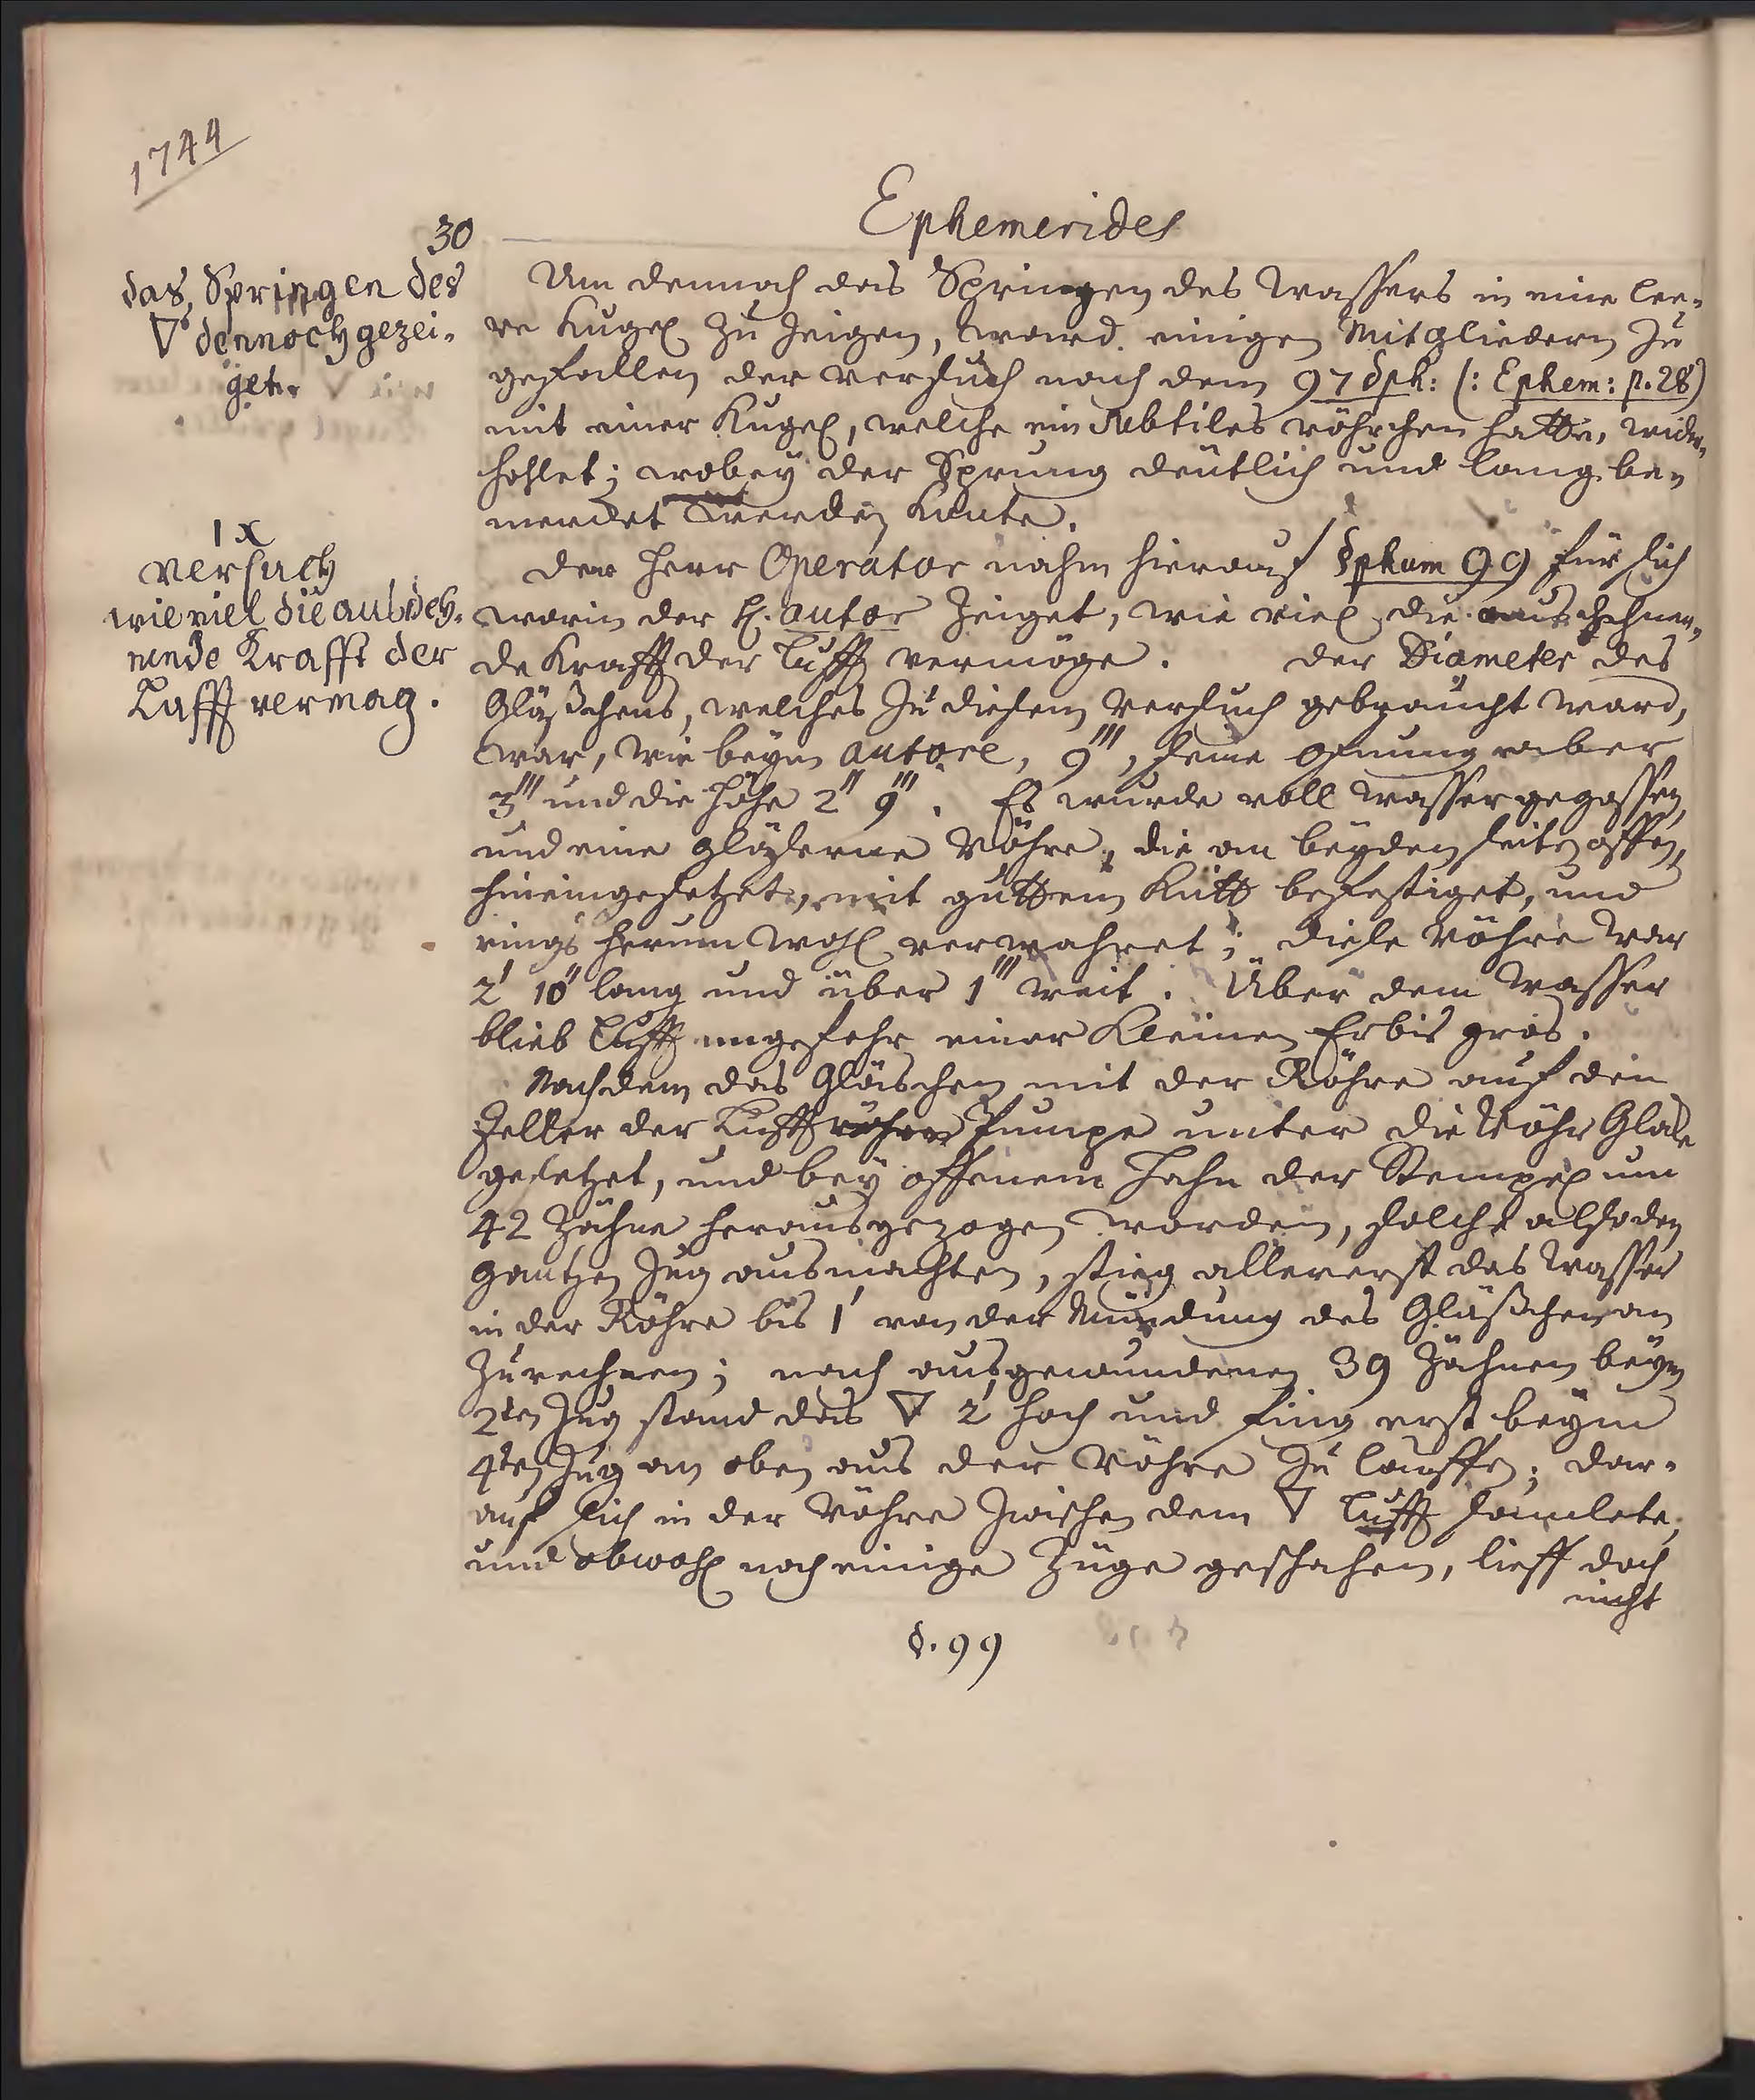 1744
30
Ephemerides
das Springen des
▽s dennoch gezei-
get.
Um dennoch das Springen des Wassers in eine lee-
re Kugel zu zeigen, ward einigen Mitgliedern zu
gefallen der Versuch nach dem 97 §ph: (: Ephem: p. 28)
mit einer Kugel, welche ein subtiles röhrchen hatte, wider-
hohlet; wobey der Sprung deutlich und lang be-
mercket werden konte.
IX
Versuch
wie viel die ausdeh-
nende Krafft der
Lufft vermag.
Der Herr Operator nahm hierauf §phum 99 für sich
worin der H. autor zeiget, wie viel die ausdehnen-
de Krafft der Lufft vermöge. Der Diameter des
Gläßchens, welches zu diesem Versuch gebraucht ward,
war, wie beym autore, 9''', seine ofnung aber
3''' und die Höhe 2'' 9'''. Es wurde voll Wasser gegossen,
und eine gläserne Röhre, die an beyden seiten offen,
hineingesetzet, mit guttem Kütt befestiget, und
rings herum wohl verwahret; diese Röhre war
2' 10'' lang und über 1''' weit. Über dem Wasser
blieb Lufft ungefehr einer kleinen Erbis gros.
Nachdem das Gläschen mit der Röhre auf den
Teller der Lufft Pumpe unter die Röhr Glase
gesetzet, und bey offenem Hahn der Stempel um
42 Zähne herausgezogen worden, solche also den
gantzen Zug ausmachten, stieg allererst das Wasser
in der Röhre bis 1' von der Mündung des Gläßchens an
zurechnen; nach ausgewundenen 39 Zähnen beym
2ten Zug stand das ▽ 2' hoch und fing erst beym
4ten Zug an oben aus der Röhre zu lauffen; dar-
auf sich in der Röhre zwischen dem ▽ Lufft samlete,
und obwohl noch einige Züge geschahen, lieff doch
nicht
§. 99